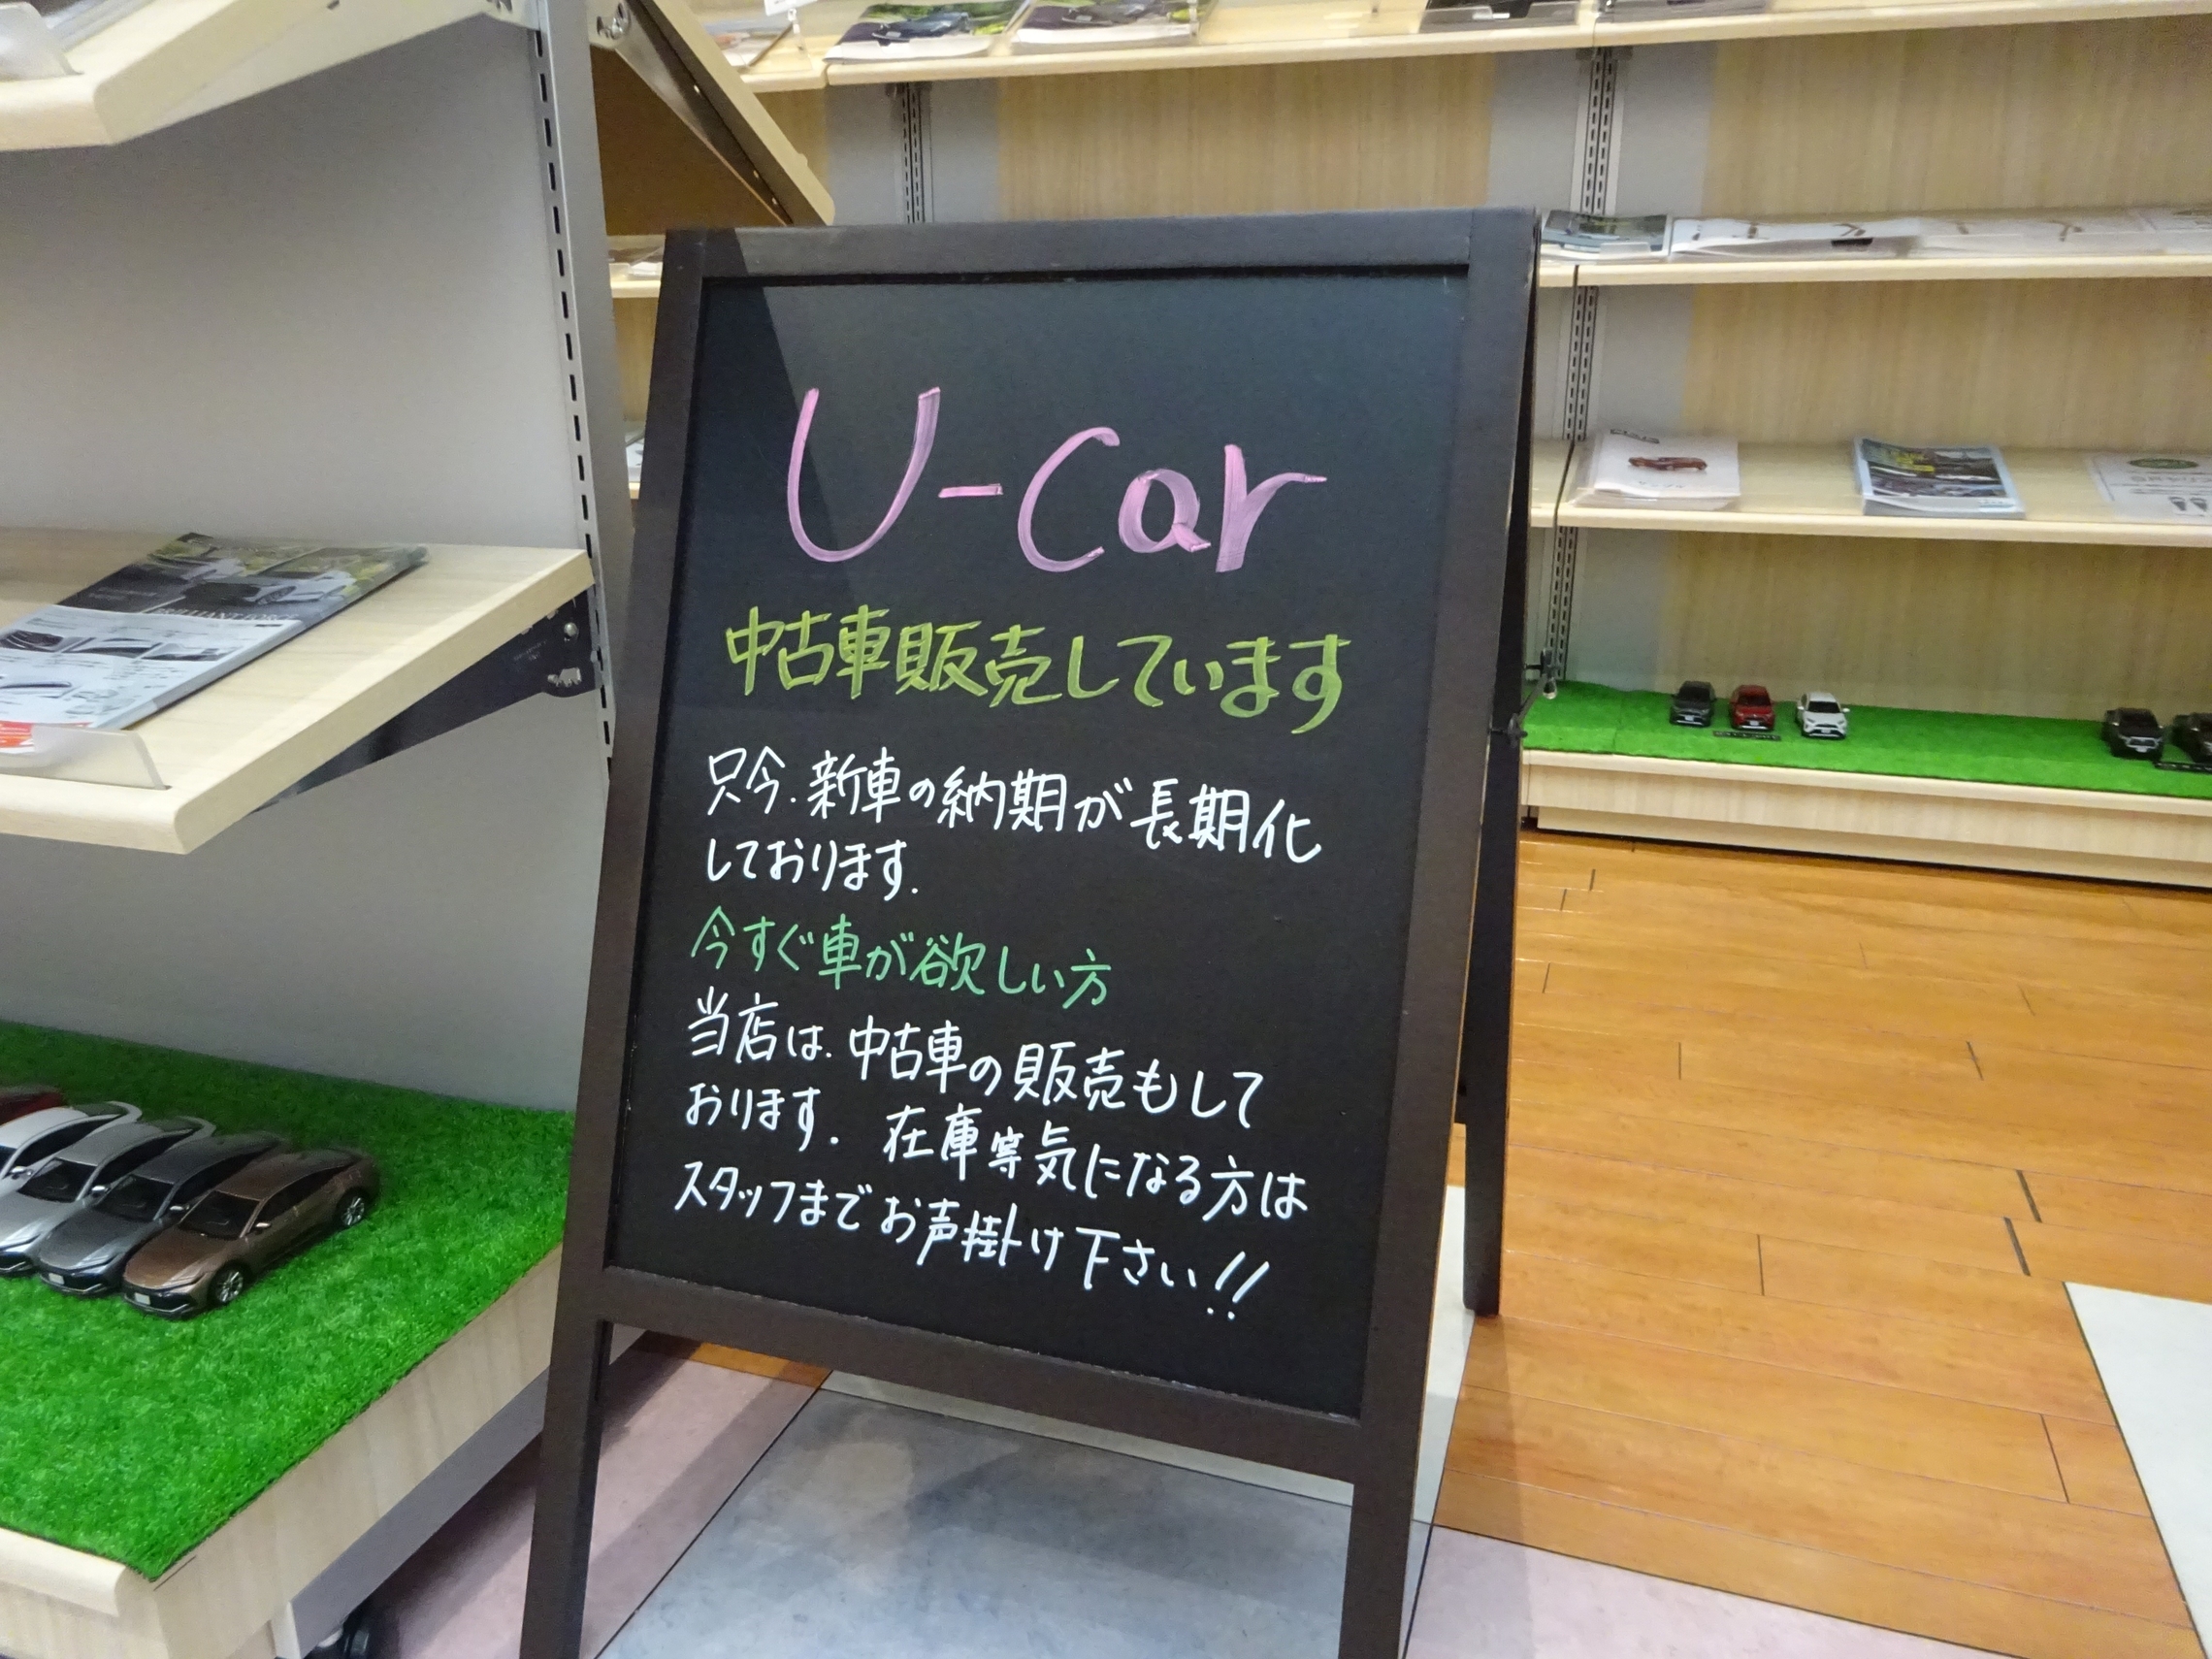 U-Car
中古車販売しています
只今.新車の納期が長期化
しております.
今すぐ車が欲しい方
当店は.中古車の販売もして
おります. 在庫等気になる方は
スタッフまでお声掛け下さい!!